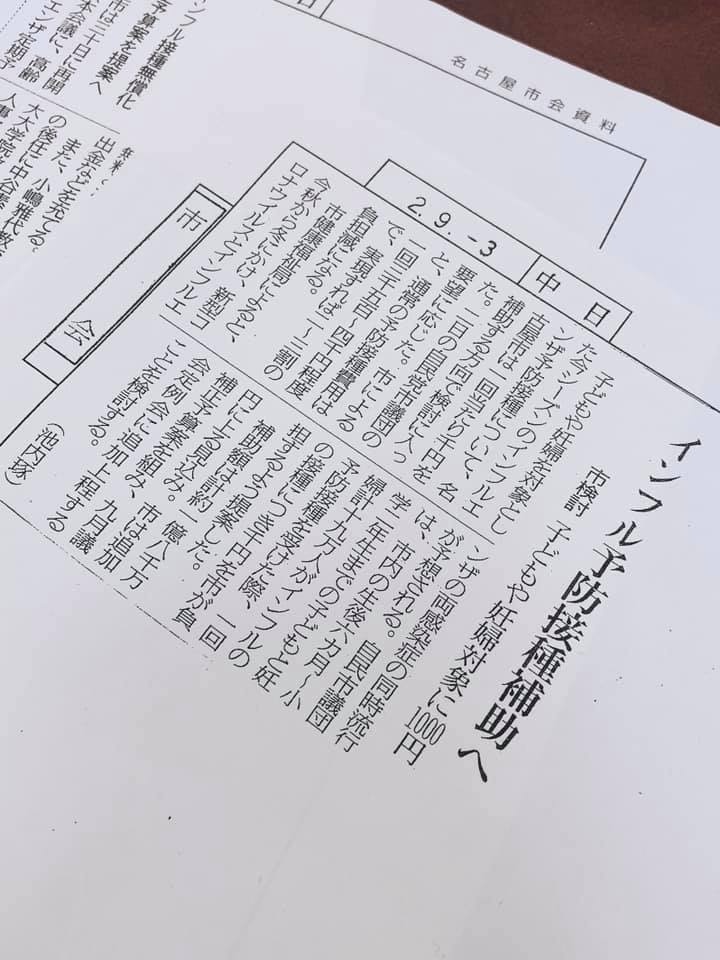 名古屋市会資料
日
2.9.-3
中日
市会
インフル予防接種補助へ
市検討 子どもや妊婦対象に1000円
子どもや妊婦を対象とし
た今シーズンのインフルエ
ンザ予防接種について、名
古屋市は一回当たり千円を
補助する方向で検討に入っ
た。一日の自民党市議団の
要望に応じた。市による
と、通常の予防接種費用は
一回三千五百～四千円程度
で、実現すれば二～三割の
負担減になる。
市健康福祉局によると、
今秋から冬にかけ、新型コ
ロナウイルスとインフルエ
ンザの両感染症の同時流行
が予想される。自民市議団
は、市内の生後六カ月～小
学二年生までの子どもと妊
婦計十九万人がインフルの
予防接種を受けた際、一回
の接種につき千円を市が負
担するよう提案した。
補助額は計約一億八千万
円に上る見込み。市は追加
補正予算案を組み、九月議
会定例会に追加上程する
ことを検討する。
(池内琢)
ンフル接種無償化
予算案を提案へ
市は三十日に再開
本会議に、高齢
エンザ定期予
出金などを充てる。
また、小嶋雅代教
の後任に中谷
大大学院